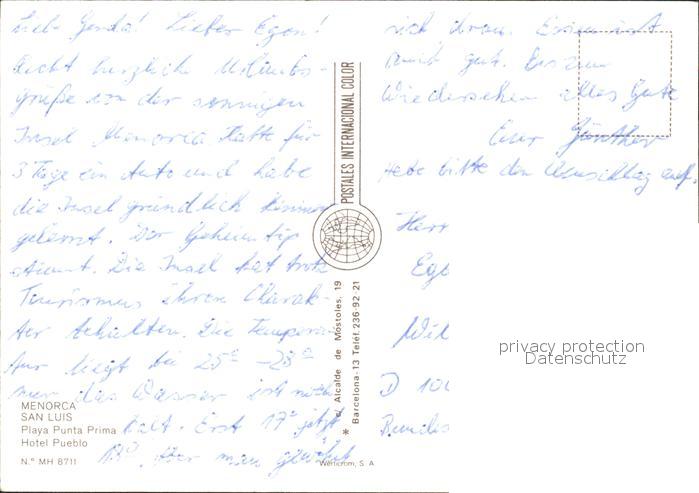 Liebe Gerda! Lieber Egon!
Recht herzliche Urlaubs-
grüße von der sonnigen
Insel Menorca. Hatte für
3 Tage ein Auto und habe
die Insel gründlich kennen
gelernt. Der Geheimtip
stimmt. Die Insel hat trotz
Tourismus ihren Charak-
ter behalten. Die Tempera-
tur liegt bei 25° - 28°
nur das Wasser ist noch
kalt. Erst 17° jetzt
18°. Aber man gewöhnt
sich dran. Essen ist
auch gut. Bis zum
Wiedersehen alles Gute
Euer Günther
Hebe bitte den Umschlag auf.
Herr
Ego
Wil
D 100
MENORCA
SAN LUIS
Playa Punta Prima
Hotel Pueblo
N.° MH 8711
POSTALES INTERNACIONAL COLOR
c/. Alcalde de Móstoles, 19
* Barcelona-13 Teléf. 236-92 21
Werticrom, S. A
privacy protection
Datenschutz